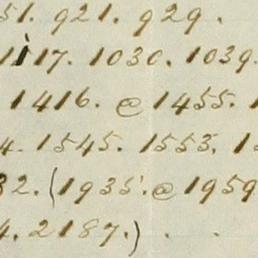 51. 921. 929.
1117. 1030. 1039.
1416. @ 1455. 1
4. 1545. 1553. 15
32. (1935. @ 1959
4. 2187.) . .